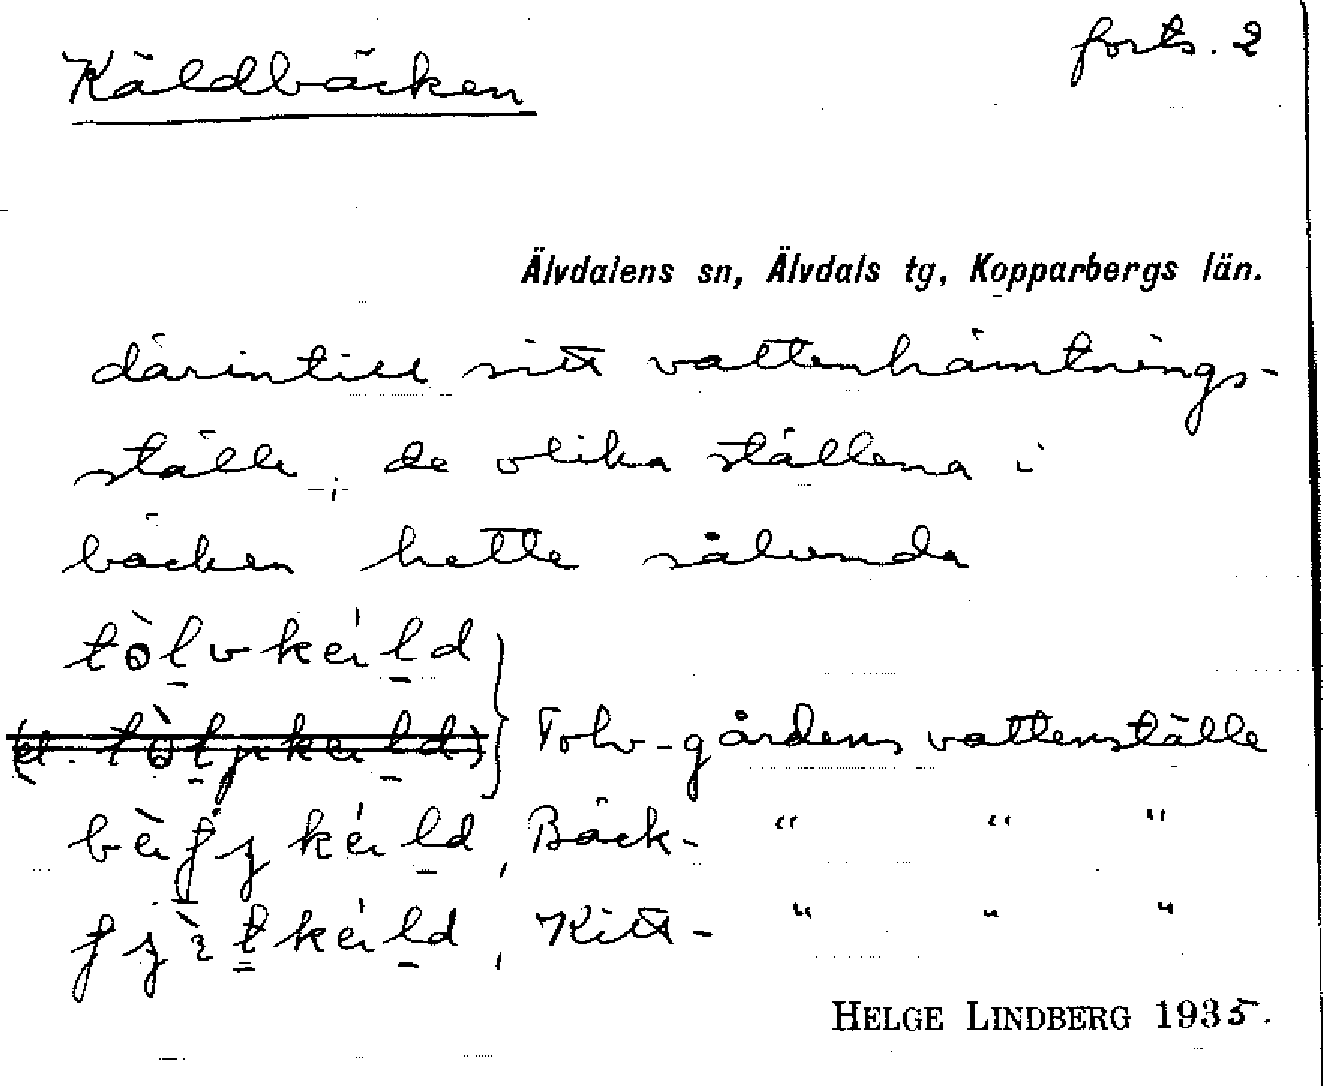 Käldbäcken
forts. 2
Älvdalens sn, Älvdals tg, Kopparbergs län.
därintill sitt vattenhämtnings-
ställe, de olika ställena i
bäcken hette sålunda
tòlvkéild
Tolv-gårdens vattenställe
kéild, Bäck- " " "
kéild, Kitt- " " "
HELGE LINDBERG 1935.